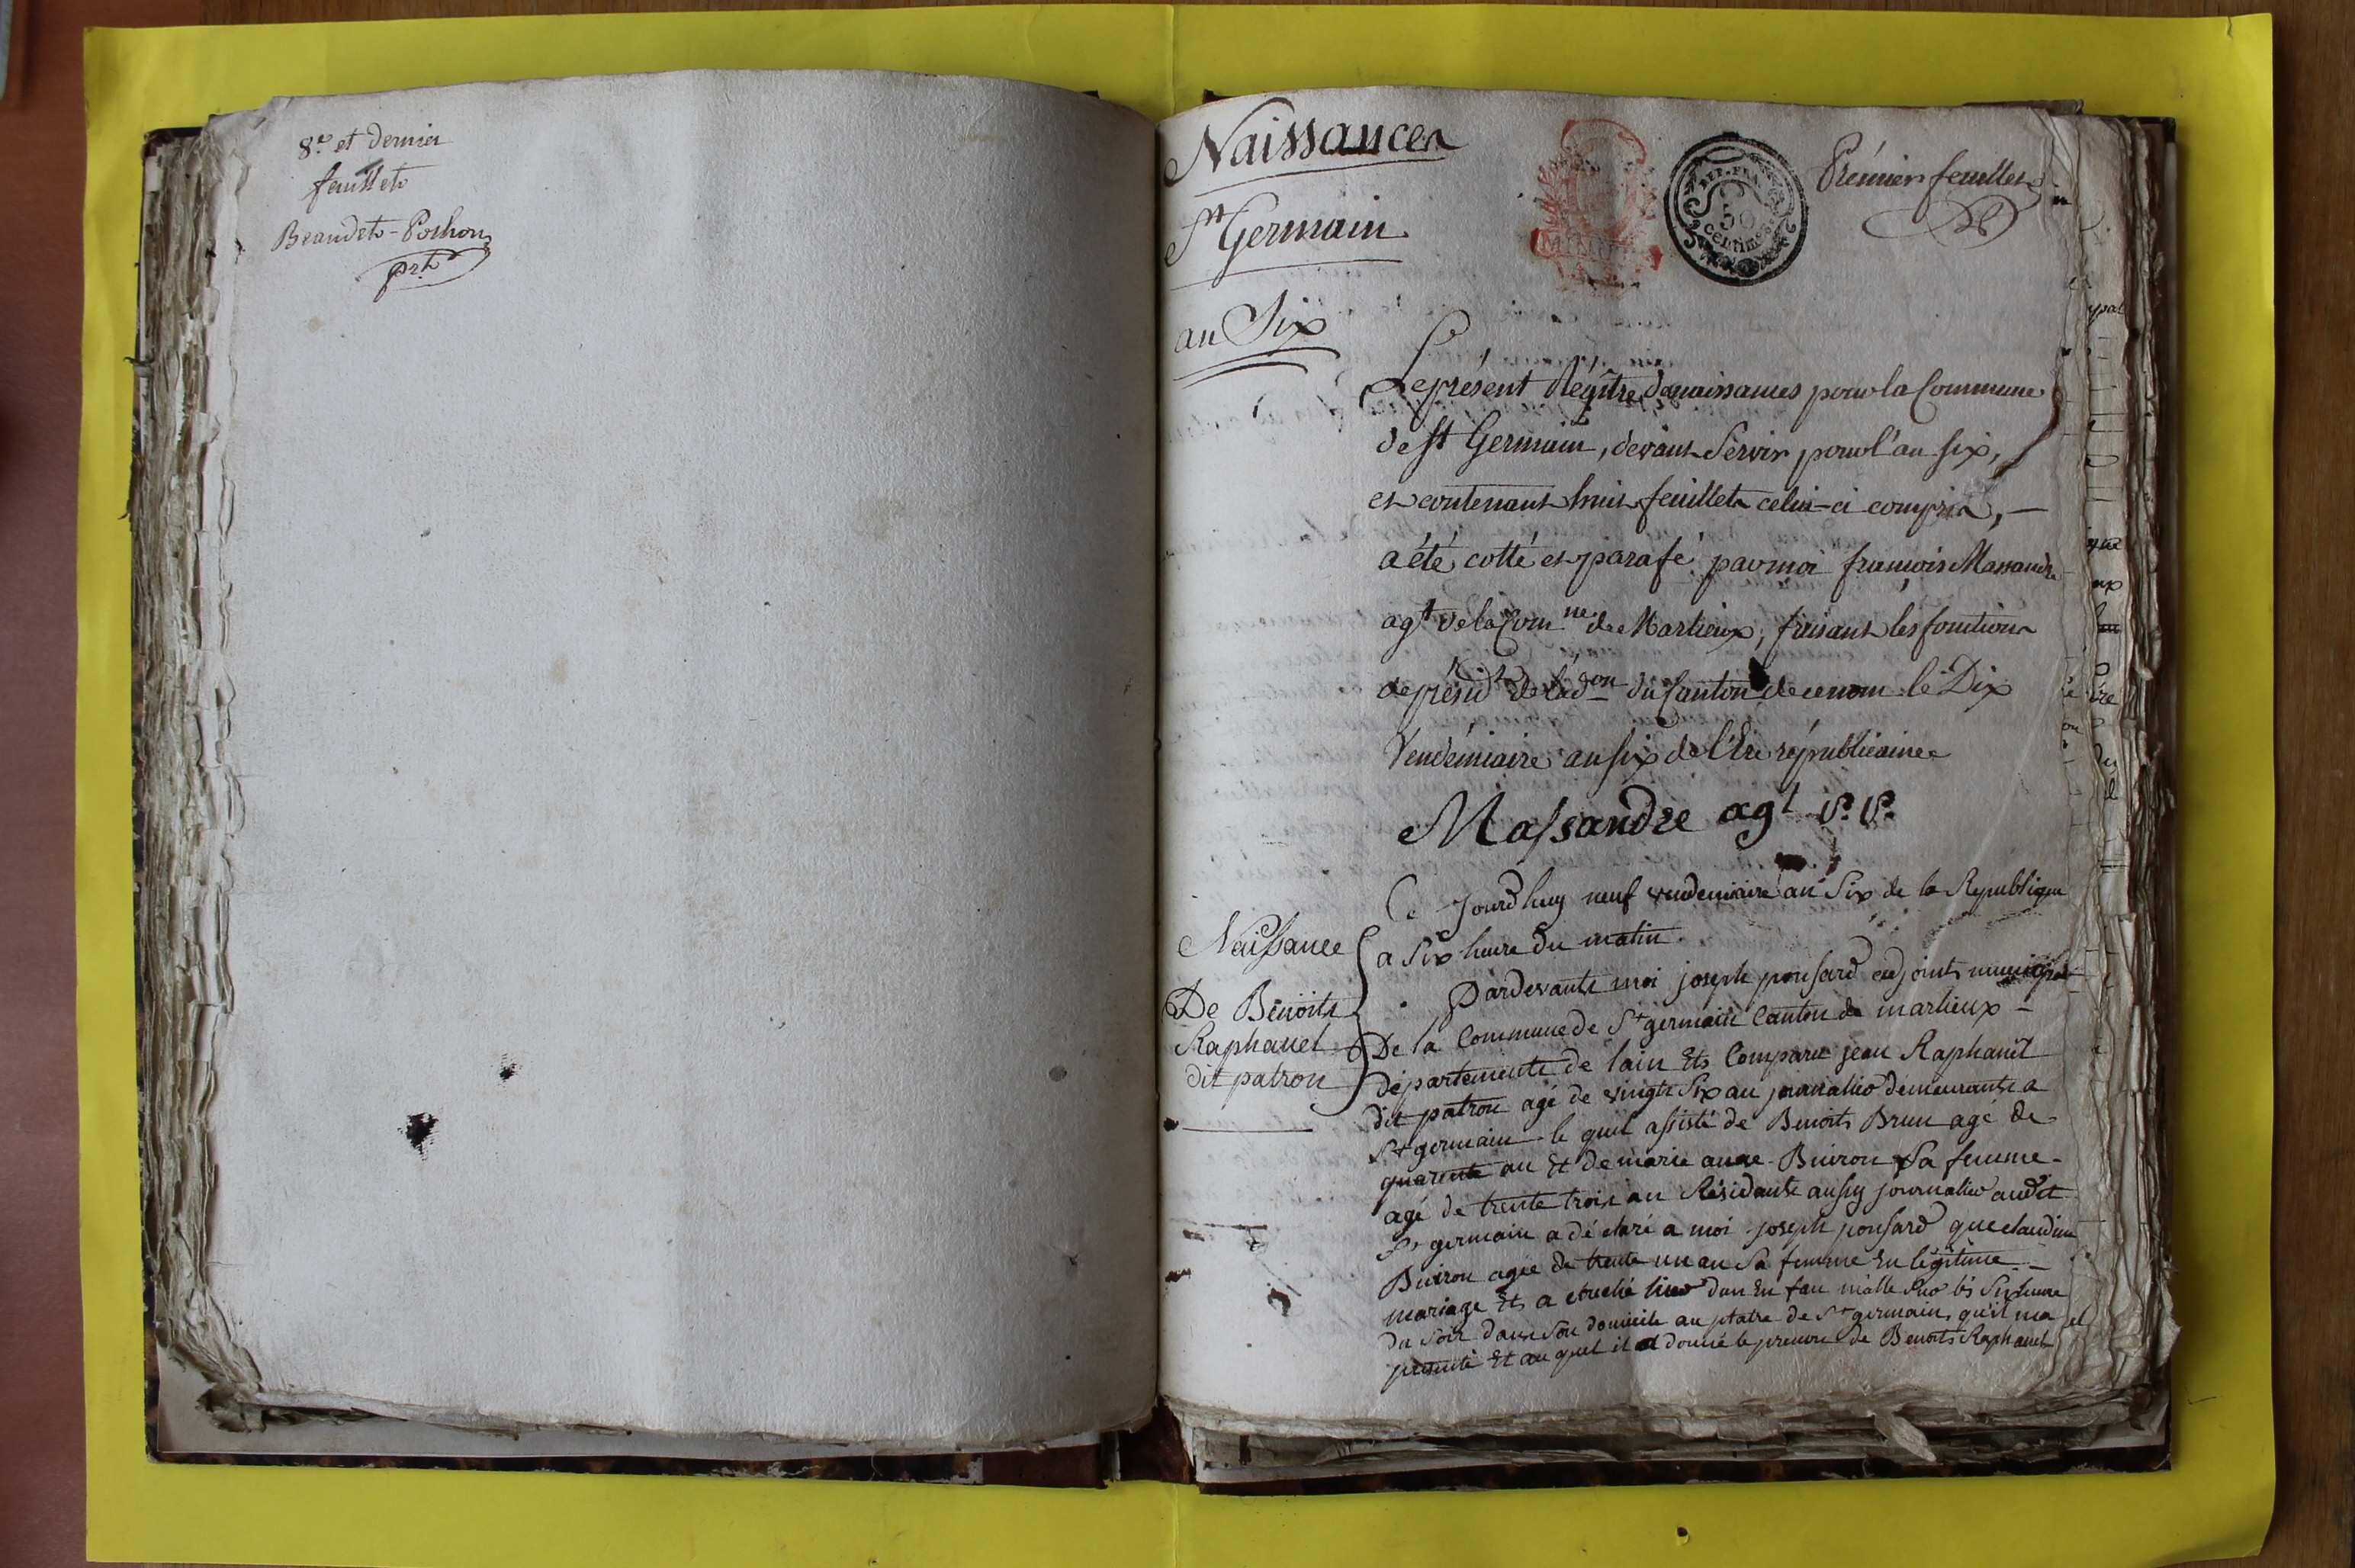 8.e et dernier
feuillet
Beaudet-Pochon
prt
Naissances
St Germain
an Six
REP. FRA.
50
centimes
Prémier feuillet
Le présent Régitre de naissances pour la Commune
de St Germain, devant Servir pour l'an six,
et contenant huit feuillets celui-ci compris,
a été cotté et parafé par moi françois Massandre
agt de la Comne de Marlieux, faisant les fonctions
de présidt de l'adon du Canton de ce nom le Dix
Vendémiaire an six de l'Ere républicaine
Massandre agt P. P.
Ce Jourdhuy neuf vendemiaire an Six de la Republique
a Six heure du matin
Naissance
De Benoits
Raphanel
dit patron
Pardevante moi joseph ponsard adjoint municipal
De la Commune de St germain Canton de marlieux
départemente de lain Ets Comparu jean Raphanel
dit patron agé de vingts Six an journalier demeurante a
St germain le quel assisté de Benoits Brun agé de
quarente an Et de marie anne Buiron Sa femme
agé de trente trois an Résidante aussy journalier audit
St germain a dé claré a moi joseph ponsard que claudine
Buiron agée de trente un an Sa femme En légitime
mariage Ets a couché hier dun En fan malle Sur les Six heure
du Soir dans Son domicile au platre de St germain, qu'il ma
presenté Et au quel il a donné le prenom de Benoits Raphanel